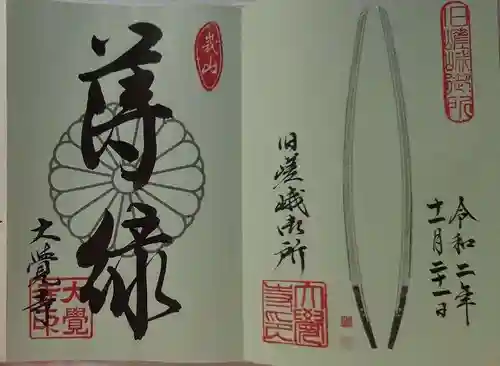 旧嵯峨御所
令和二年
十一月二十一日
旧嵯峨御所
大覺寺印
嵯山
薄緑
大覺寺
大覺寺印